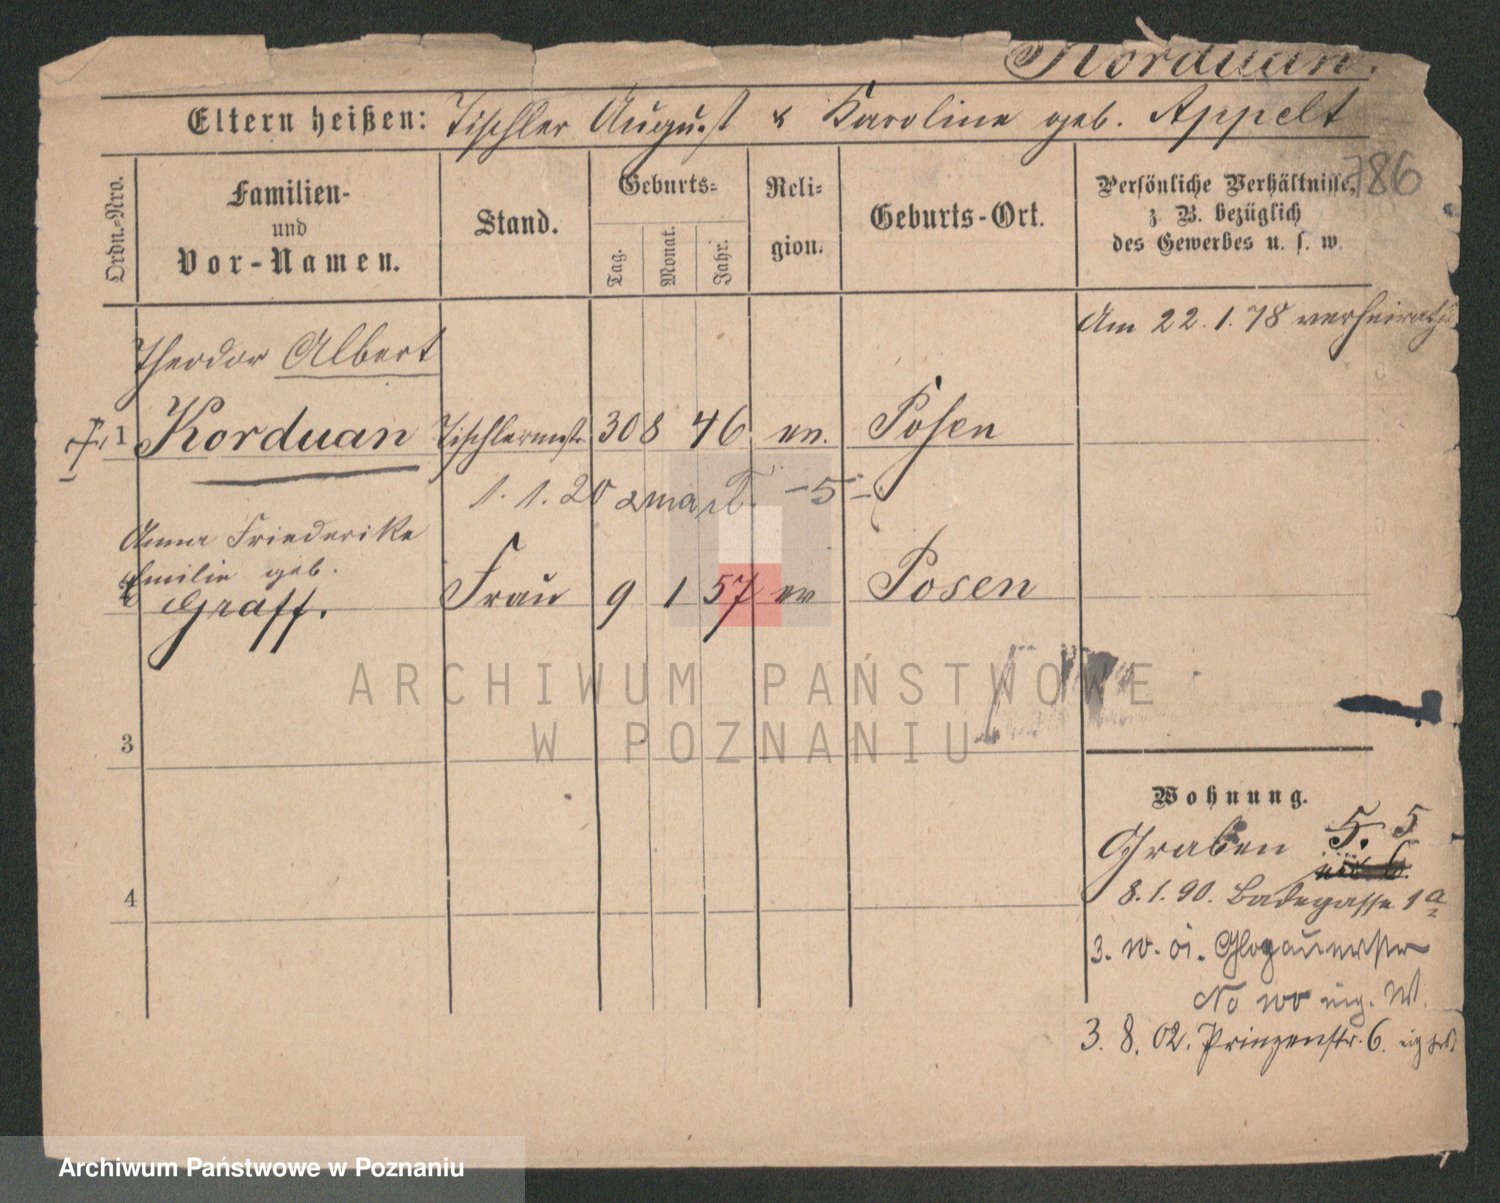 Korduan.
Eltern heißen: Tischler August & Karoline geb. Appelt
786
Ordn.=Nro.
Familien-
und
Vor-Namen.
Stand.
Geburts=
Tag.
Monat.
Jahr.
Reli=
gion.
Geburts-Ort.
Persönliche Verhältnisse,
z. B. bezüglich
des Gewerbes u. s. w.
Am 22.1.78 verheirathet
Theodor Albert
1 Korduan Tischlermstr. 30 8 46 ev. Posen
1. 1. 20 -5-
Anna Friederike
Emilie geb.
2 Graff. Frau 9 1 57 ev Posen
3
4
Wohnung.
Graben 5. 5
8.1.90. Badegasse 1a
Glogauerstr
3. 8. 02. Prinzenstr. 6.
ARCHIWUM PAŃSTWOWE
W POZNANIU
Archiwum Państwowe w Poznaniu